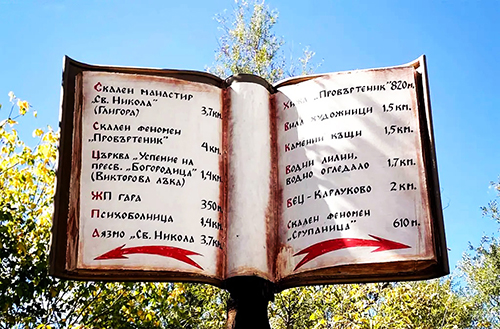 Скален манастир
„Св. Никола"
(Глигора) 3,7км
Скален феномен
„Провъртеник" 4км.
Църква „Успение на
пресв. „Богородица" 1,4км
(Викторова лъка)
ЖП гара 350м
Психоболница 1,4км
Аязмо „Св. Никола 3,7км
Хижа „Провъртеник" 820м.
Вила художници 1,5км.
Каменни къщи 1,5км.
Водни лилии,
водно огледало 1,7км.
ВЕЦ - Карлуково 2км.
Скален феномен
„Струпаница" 610м.